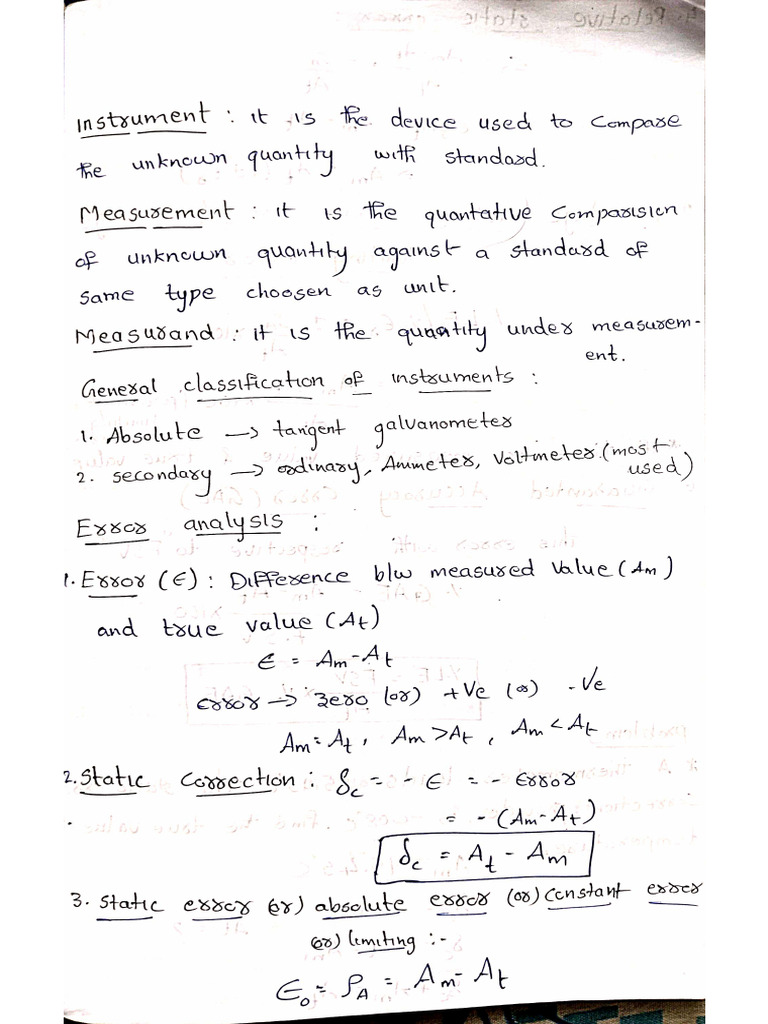 Instrument : it is the device used to compare
the unknown quantity with standard.
Measurement : it is the quantative comparision
of unknown quantity against a standard of
same type choosen as unit.
Measurand : it is the quantity under measurem-
ent.
General classification of instruments :
1. Absolute → tangent galvanometer
2. secondary → ordinary, Ammeter, Voltmeter (most
used)
Error analysis :
1. Error (∈) : Difference b/w measured value (Am)
and true value (At)
∈ = Am - At
error → zero (or) +Ve (or) -Ve
Am = At , Am > At , Am < At
2. Static Correction : δc = - ∈ = - Error
= - (Am - At)
δc = At - Am
3. Static error (or) absolute error (or) constant error
(or) limiting :-
∈o = ρA = Am - At